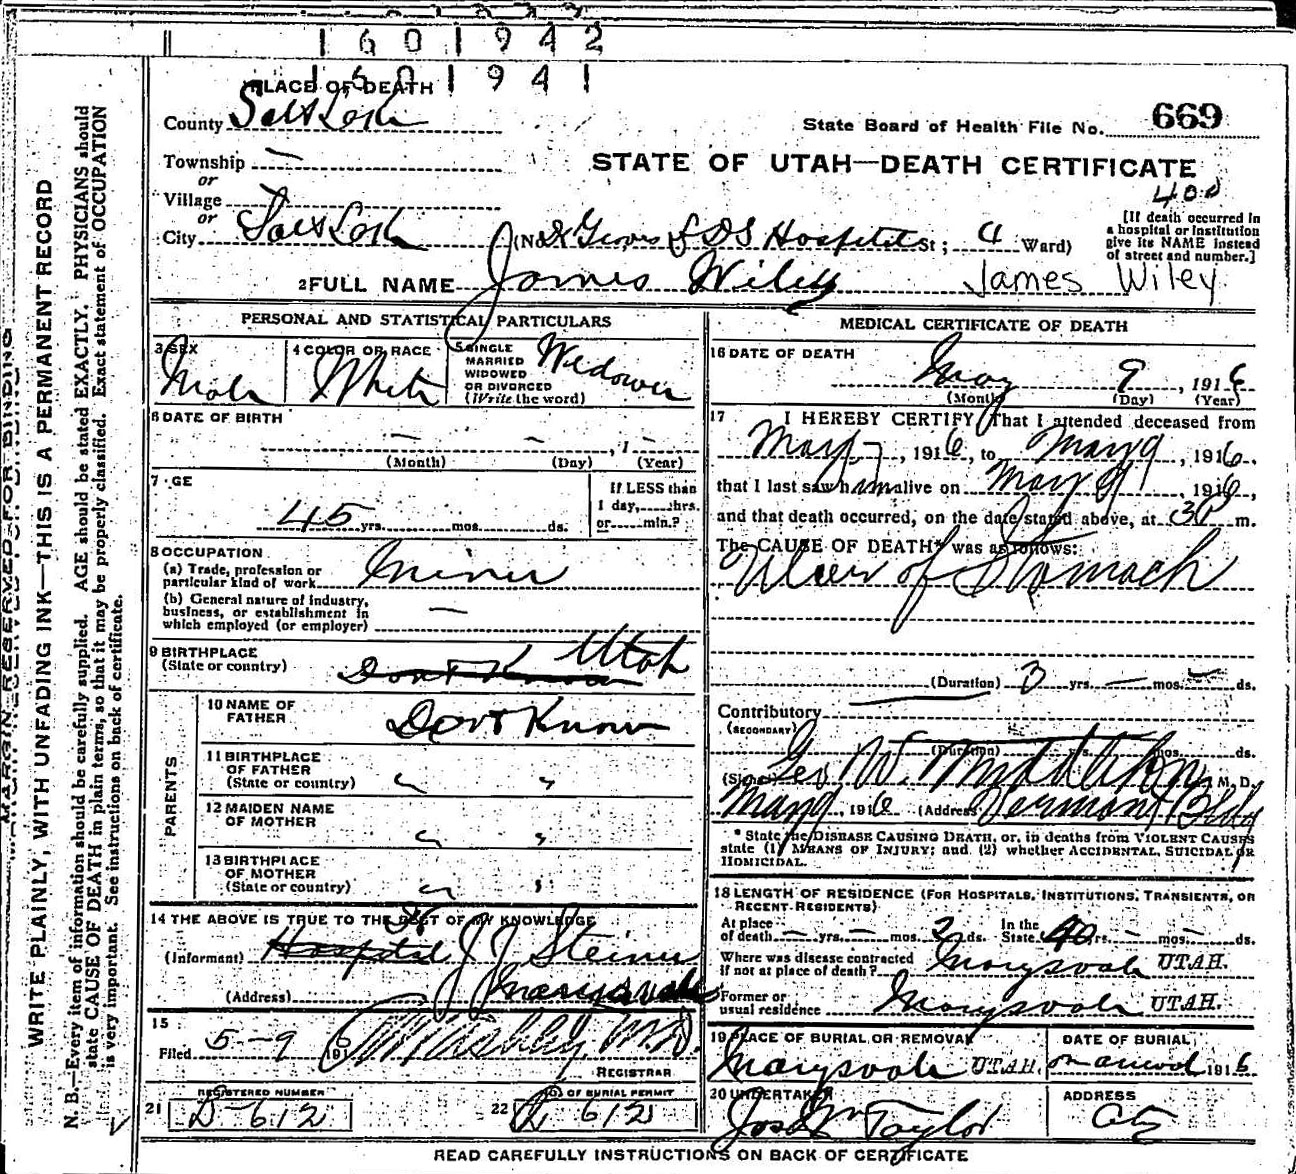 1601942
1601941
PLACE OF DEATH
County Salt Lake
State Board of Health File No. 669
Township —
or
STATE OF UTAH—DEATH CERTIFICATE
Village
or
City Salt Lake (No. Groves L D S Hospital St; 4 Ward)
[If death occurred in
a hospital or institution
give its NAME instead
of street and number.]
2 FULL NAME James Wiley James Wiley
PERSONAL AND STATISTICAL PARTICULARS
3 SEX
Male
4 COLOR OR RACE
White
5 SINGLE
MARRIED
WIDOWED
OR DIVORCED
(Write the word)
Widower
6 DATE OF BIRTH
— — , 1 —
(Month) (Day) (Year)
7 GE
45 yrs. mos. ds.
If LESS than
1 day, hrs.
or min.?
8 OCCUPATION
(a) Trade, profession or
particular kind of work Miner
(b) General nature of industry,
business, or establishment in
which employed (or employer) —
9 BIRTHPLACE
(State or country) Dont Know Utah
PARENTS
10 NAME OF
FATHER Dont Know
11 BIRTHPLACE
OF FATHER
(State or country) " "
12 MAIDEN NAME
OF MOTHER " "
13 BIRTHPLACE
OF MOTHER
(State or country) " "
14 THE ABOVE IS TRUE TO THE BEST OF MY KNOWLEDGE
(Informant) Hospital J J Steiner
(Address) Marysvale
15
Filed 5-9 1916 M.D.
REGISTRAR
REGISTERED NUMBER
21 D-612
NO. OF BURIAL PERMIT
22 612
MEDICAL CERTIFICATE OF DEATH
16 DATE OF DEATH
May 9, 1916
(Month) (Day) (Year)
17 I HEREBY CERTIFY That I attended deceased from
May 7, 1916, to May 9, 1916,
that I last saw him alive on May 9, 1916,
and that death occurred, on the date stated above, at 3 P m.
The CAUSE OF DEATH* was as follows:
Ulcer of Stomach
(Duration) 3 yrs. — mos. — ds.
Contributory
(SECONDARY)
(Duration) yrs. mos. ds.
(Signed) Geo W. M. D.
May 9 1916 (Address) Vermont Bldg
* State the DISEASE CAUSING DEATH, or, in deaths from VIOLENT CAUSES
state (1) MEANS OF INJURY; and (2) whether ACCIDENTAL, SUICIDAL, or
HOMICIDAL.
18 LENGTH OF RESIDENCE (FOR HOSPITALS, INSTITUTIONS, TRANSIENTS, OR
RECENT RESIDENTS)
At place
of death — yrs. — mos. 2 ds. In the
State 40 yrs. — mos. — ds.
Where was disease contracted
if not at place of death? Marysvale UTAH.
Former or
usual residence Marysvale UTAH.
19 PLACE OF BURIAL OR REMOVAL
Marysvale UTAH.
DATE OF BURIAL
on arrival 1916
20 UNDERTAKER
Jos Wm Taylor
ADDRESS
City
READ CAREFULLY INSTRUCTIONS ON BACK OF CERTIFICATE
MARGIN RESERVED FOR BINDING
WRITE PLAINLY, WITH UNFADING INK—THIS IS A PERMANENT RECORD
N. B.—Every item of information should be carefully supplied. AGE should be stated EXACTLY. PHYSICIANS should
state CAUSE OF DEATH in plain terms, so that it may be properly classified. Exact statement of OCCUPATION
is very important. See instructions on back of certificate.